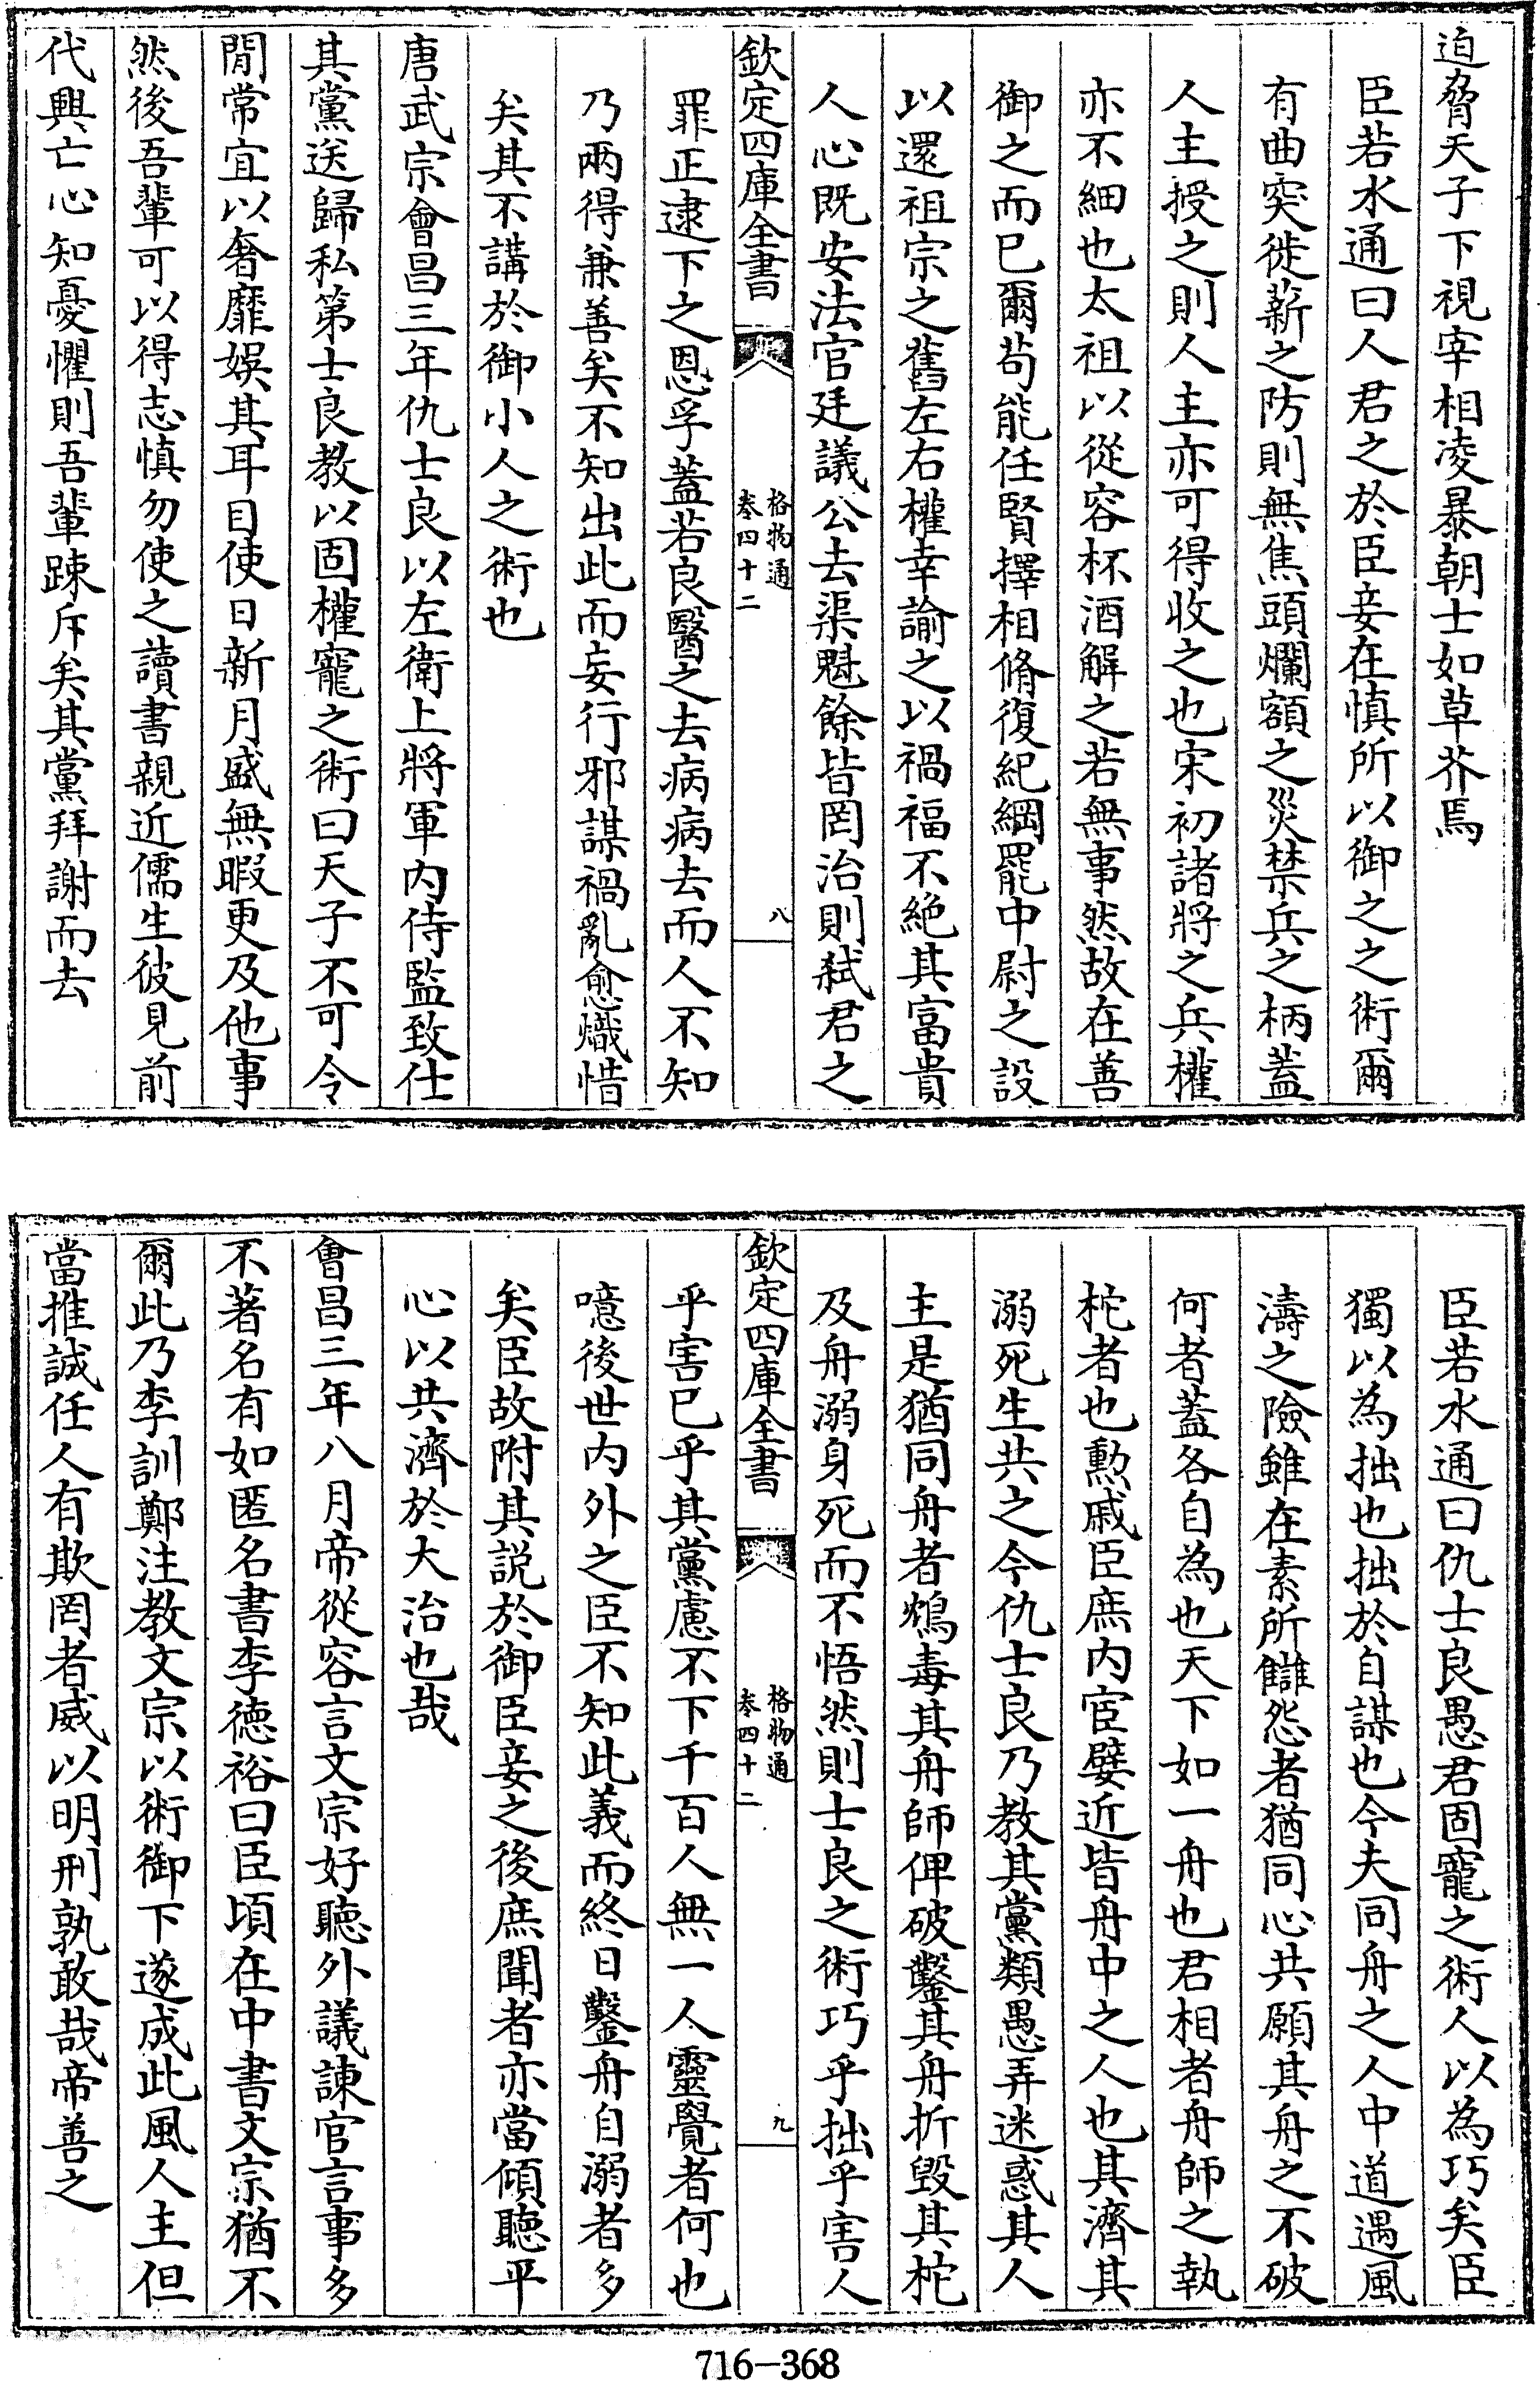 迫脅天子下視宰相凌暴朝士如草芥焉
臣若水通曰人君之於臣妾在慎所以御之之術爾
有曲突徙薪之防則無焦頭爛額之災禁兵之柄蓋
人主授之則人主亦可得收之也宋初諸將之兵權
亦不細也太祖以從容杯酒解之若無事然故在善
御之而已爾苟能任賢擇相脩復紀綱罷中尉之設
以還祖宗之舊左右權幸諭之以禍福不絶其富貴
人心既安法官廷議公去渠魁餘皆罔治則弑君之
欽定四庫全書
格物通
卷四十二
八
罪正逮下之恩孚蓋若良醫之去病病去而人不知
乃兩得兼善矣不知出此而妄行邪謀禍亂愈熾惜
矣其不講於御小人之術也
唐武宗會昌三年仇士良以左衛上將軍内侍監致仕
其黨送歸私第士良教以固權寵之術曰天子不可令
閒常宜以奢靡娛其耳目使日新月盛無暇更及他事
然後吾輩可以得志慎勿使之讀書親近儒生彼見前
代興亡心知憂懼則吾輩踈斥矣其黨拜謝而去
臣若水通曰仇士良愚君固寵之術人以為巧矣臣
獨以為拙也拙於自謀也今夫同舟之人中道遇風
濤之險雖在素所讎怨者猶同心共願其舟之不破
何者蓋各自為也天下如一舟也君相者舟師之執
柁者也勲戚臣庶内宦嬖近皆舟中之人也其濟其
溺死生共之今仇士良乃教其黨類愚弄迷惑其人
主是猶同舟者鴆毒其舟師俾破鑿其舟折毁其柁
及舟溺身死而不悟然則士良之術巧乎拙乎害人
欽定四庫全書
格物通
卷四十二
九
乎害已乎其黨慮不下千百人無一人靈覺者何也
噫後世内外之臣不知此義而終日鑿舟自溺者多
矣臣故附其説於御臣妾之後庶聞者亦當傾聽平
心以共濟於大治也哉
會昌三年八月帝從容言文宗好聽外議諌官言事多
不著名有如匿名書李徳裕曰臣頃在中書文宗猶不
爾此乃李訓鄭注教文宗以術御下遂成此風人主但
當推誠任人有欺罔者威以明刑孰敢哉帝善之
716-368